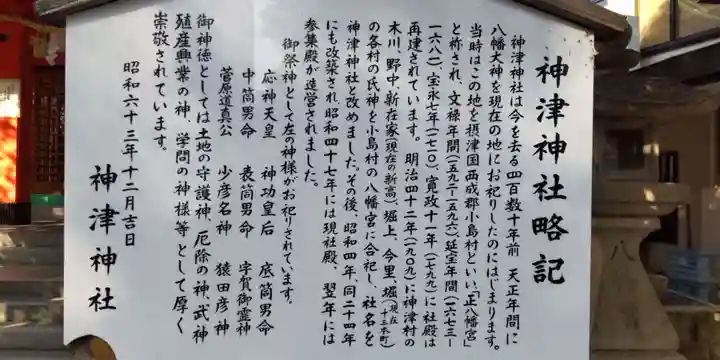 神津神社略記
神津神社は今を去る四百数十年前 天正年間に
八幡大神を現在の地にお祀りしたのにはじまります。
当時はこの地を摂津国西成郡小島村といい、「正八幡宮」
と称され、文禄年間(一五九二―一五九六)、延宝年間(一六七三―
一六八一)、宝永七年(一七一〇)、寛政十一年(一七九九)に社殿は
再建されています。明治四十二年(一九〇九)に神津村の
木川、野中、新在家(現在の新高)、堀上、今里、堀(現在十三本町)
の各村の氏神を小島村の八幡宮に合祀し、社名を
神津神社と改めました。その後、昭和四年、同二十四年
にも改築され昭和四十七年には現社殿、翌年には
参集殿が造営されました。
御祭神として左の神様がお祀りされています。
応神天皇 神功皇后 底筒男命
中筒男命 表筒男命 宇賀御霊神
菅原道真公 少彦名神 猿田彦神
御神徳としては土地の守護神、厄除の神、武神
殖産興業の神、学問の神様等として厚く
崇敬されています。
昭和六十三年十二月吉日
神津神社
八